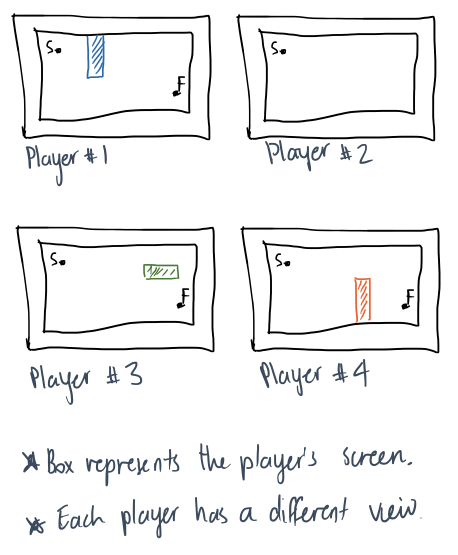 S.
F
Player #1
S.
Player #2
S.
F
Player #3
S.
F
Player #4
* Box represents the player's screen.
* Each player has a different view.